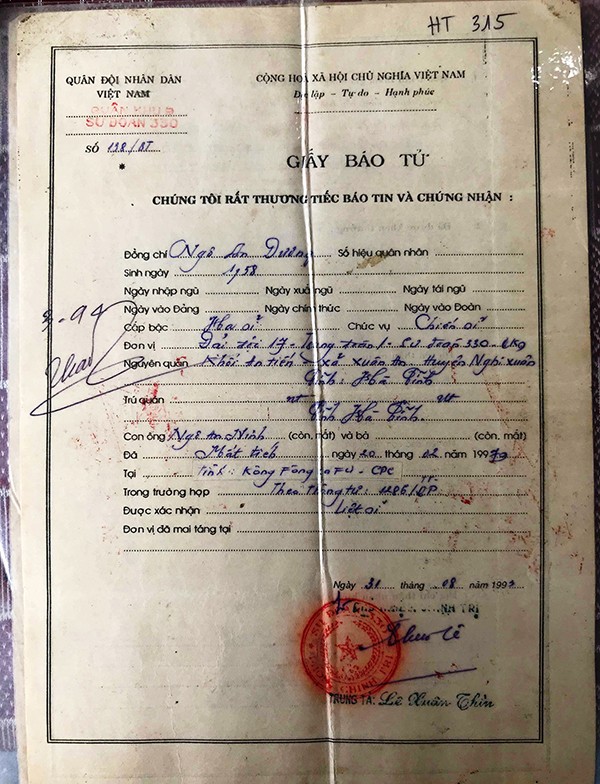 HT 315
QUÂN ĐỘI NHÂN DÂN
VIỆT NAM
QUÂN KHU 9
SƯ ĐOÀN 330
SỐ 138/BT
CỘNG HOÀ XÃ HỘI CHỦ NGHĨA VIỆT NAM
Độc lập - Tự do - Hạnh phúc
GIẤY BÁO TỬ
CHÚNG TÔI RẤT THƯƠNG TIẾC BÁO TIN VÀ CHỨNG NHẬN :
Đồng chí Ngô An Dương Số hiệu quân nhân
Sinh ngày 1958
Ngày nhập ngũ Ngày xuất ngũ Ngày tái ngũ
Ngày vào Đảng Ngày chính thức Ngày vào Đoàn
Cấp bậc Hạ sĩ Chức vụ Chiến sĩ
Đơn vị Đại đội 17 - Trung đoàn 1 - Sư đoàn 330 - QK9
Nguyên quán Khối An tiên - xã Xuân An - huyện Nghi Xuân
Tỉnh: Hà Tĩnh
Trú quán nt nt
Tỉnh Hà Tĩnh
Con ông Ngô An Ninh (còn, mất) và bà (còn, mất)
Đã Mất tích ngày 20 tháng 02 năm 1979
Tại Tỉnh: Kông Fông - CPC
Trong trường hợp Theo thông tư: 1286/QP
Được xác nhận Liệt sĩ
Đơn vị đã mai táng tại
3-94
Ngày 31 tháng 08 năm 1993
CHÍNH TRỊ
TRUNG TÁ: Lê Xuân Thìn